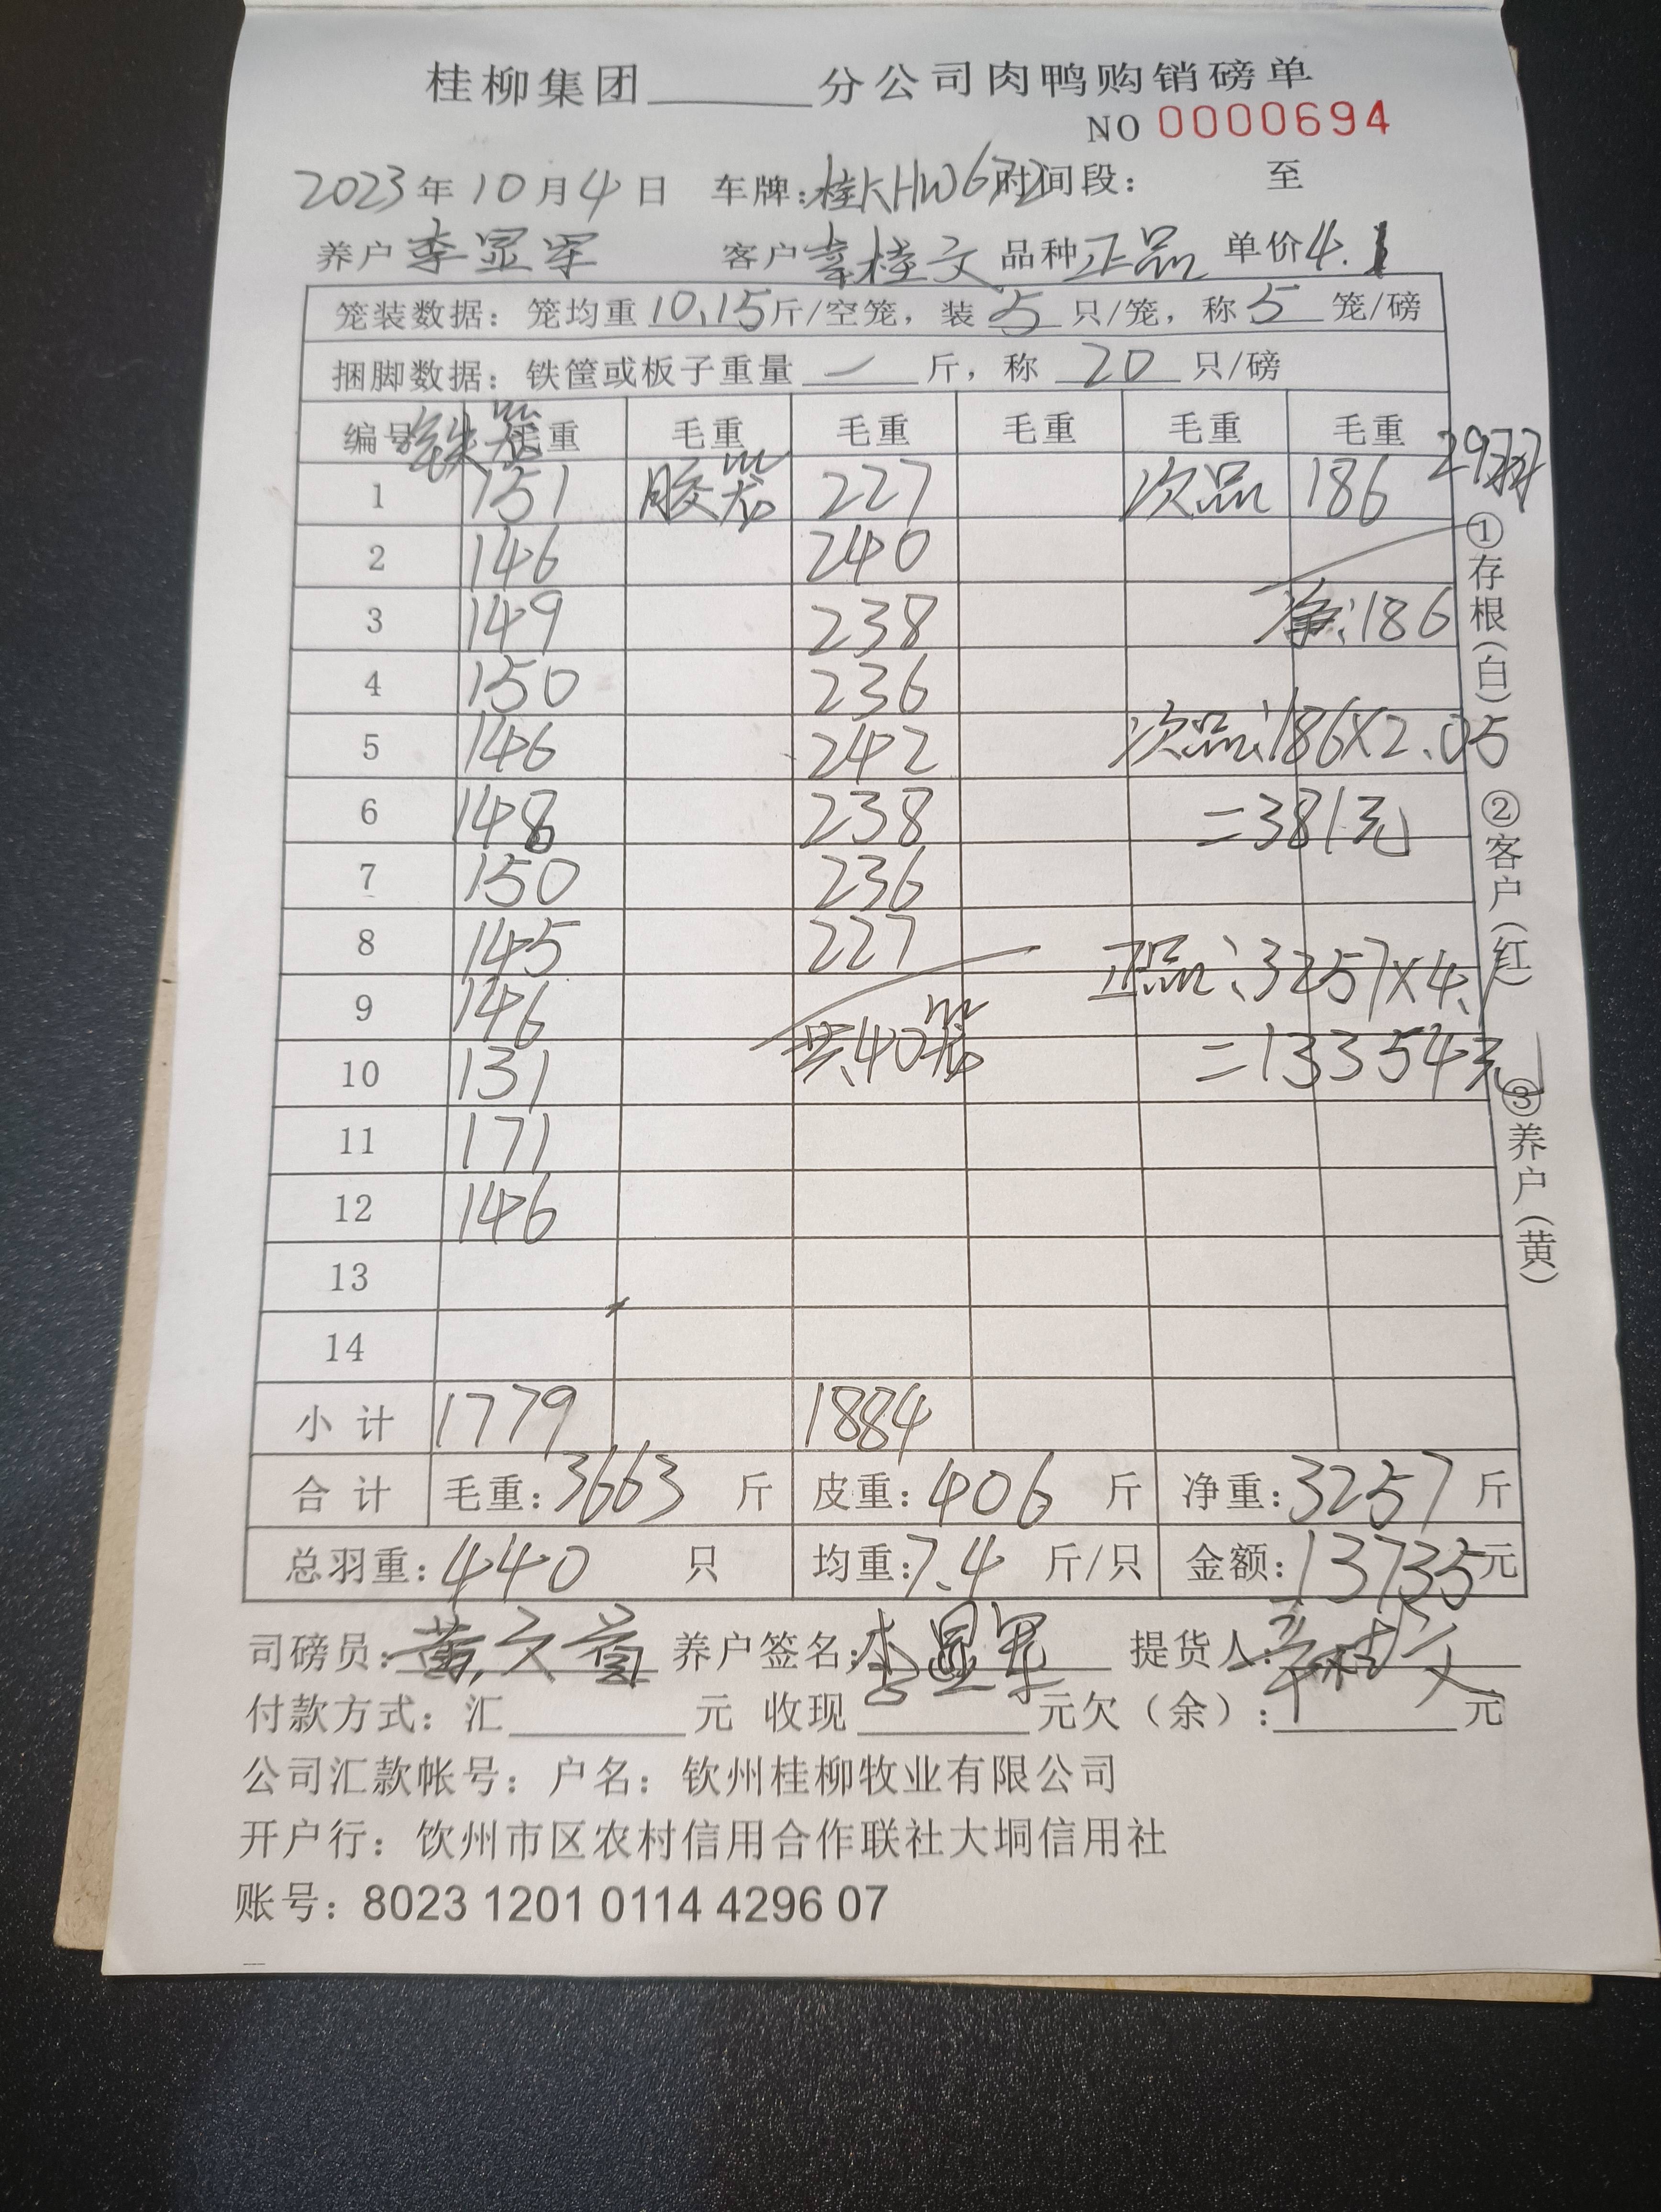 桂柳集团______分公司肉鸭购销磅单
NO 0000694
2023年10月4日 车牌:桂KHW672 时间段: 至
养户 李显军 客户 桂文 品种 正品 单价 4.1
笼装数据: 笼均重 10.15 斤/空笼, 装 5 只/笼, 称 5 笼/磅
捆脚数据: 铁筐或板子重量 — 斤, 称 20 只/磅
编号 铁笼 毛重 毛重 毛重 毛重 毛重 毛重 29羽
1 151 胶笼 227 次品 186
2 146 240
3 149 238 净:186
4 150 236
5 146 242 次品:186×2.05
6 148 238 =381元
7 150 236
8 145 227 正品:3257×4.1
9 146
10 131 共40笼 =13354元
11 171
12 146
13
14
小计 1779 1884
合计 毛重:3663 斤 皮重:406 斤 净重:3257 斤
总羽重:440 只 均重:7.4 斤/只 金额:13735元
①存根(白) ②客户(红) ③养户(黄)
司磅员: 黄文 养户签名: 李显军 提货人: 桂文
付款方式: 汇______元 收现______元欠(余):______元
公司汇款帐号: 户名: 钦州桂柳牧业有限公司
开户行: 钦州市区农村信用合作联社大垌信用社
账号: 8023 1201 0114 4296 07